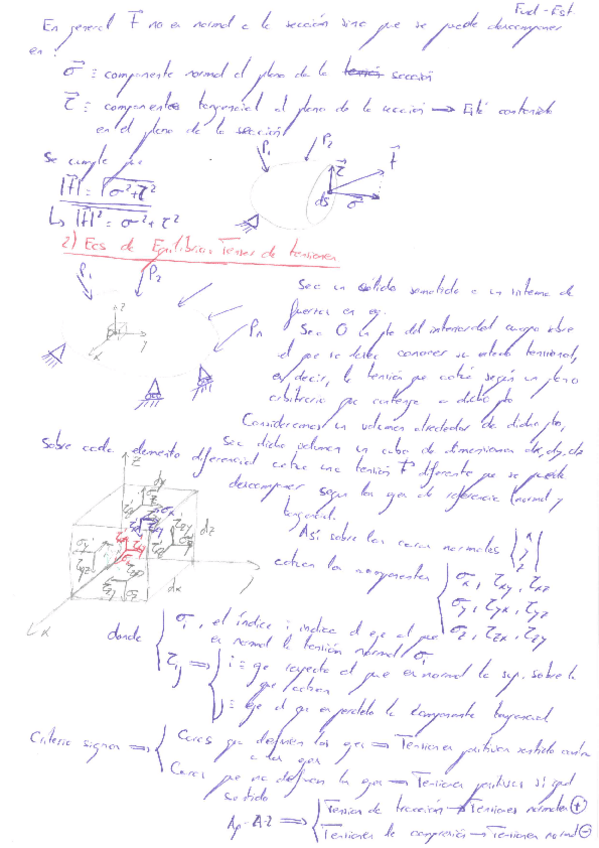 Fund-Est
En general F no es normal a la sección sino que se puede descomponer
en:
σ ≡ componente normal al plano de la sección
τ ≡ componente tangencial al plano de la sección → Está contenido
en el plano de la sección
Se cumple que
P1 P2
|F| = √σ²+τ²
τ F
ds σ
↳ |F|² = σ²+τ²
2) Ecs de Equilibrio. Tensor de tensiones
P1 P2
Pn
z
y
x
Sea un sólido sometido a un sistema de
fuerzas en eq.
Sea O un pto del interior del cuerpo sobre
el que se desea conocer su estado tensional,
es decir, la tensión que actúa según un plano
arbitrario que contenga a dicho pto
Consideremos un volumen alrededor de dicho pto,
sea dicho volumen un cubo de dimensiones dx, dy, dz
Sobre cada elemento diferencial actúa una tensión F diferente que se puede
descomponer según los ejes de referencia (normal y
tangencial.
Así sobre las caras normales { x y z }
actúan las componentes
σx, τxy, τxz
σy, τyx, τyz
σz, τzx, τzy
z
dy
dz
dx
y
x
donde
σi, el índice i indica el eje al que
es normal la tensión normal σi
τij ⇒ i ≡ eje respecto al que es normal la sup. sobre la
que actúan
j ≡ eje al que es paralela la componente tangencial
Criterio signos ⇒ Caras que definen los ejes ⇒ Tensiones positivas sentido
a los ejes
Caras que no definen los ejes ⇒ Tensiones positivas si
sentido
⇒ Tensión de tracción → Tensiones normales ⊕
Tensiones de compresión → Tensiones normal ⊖